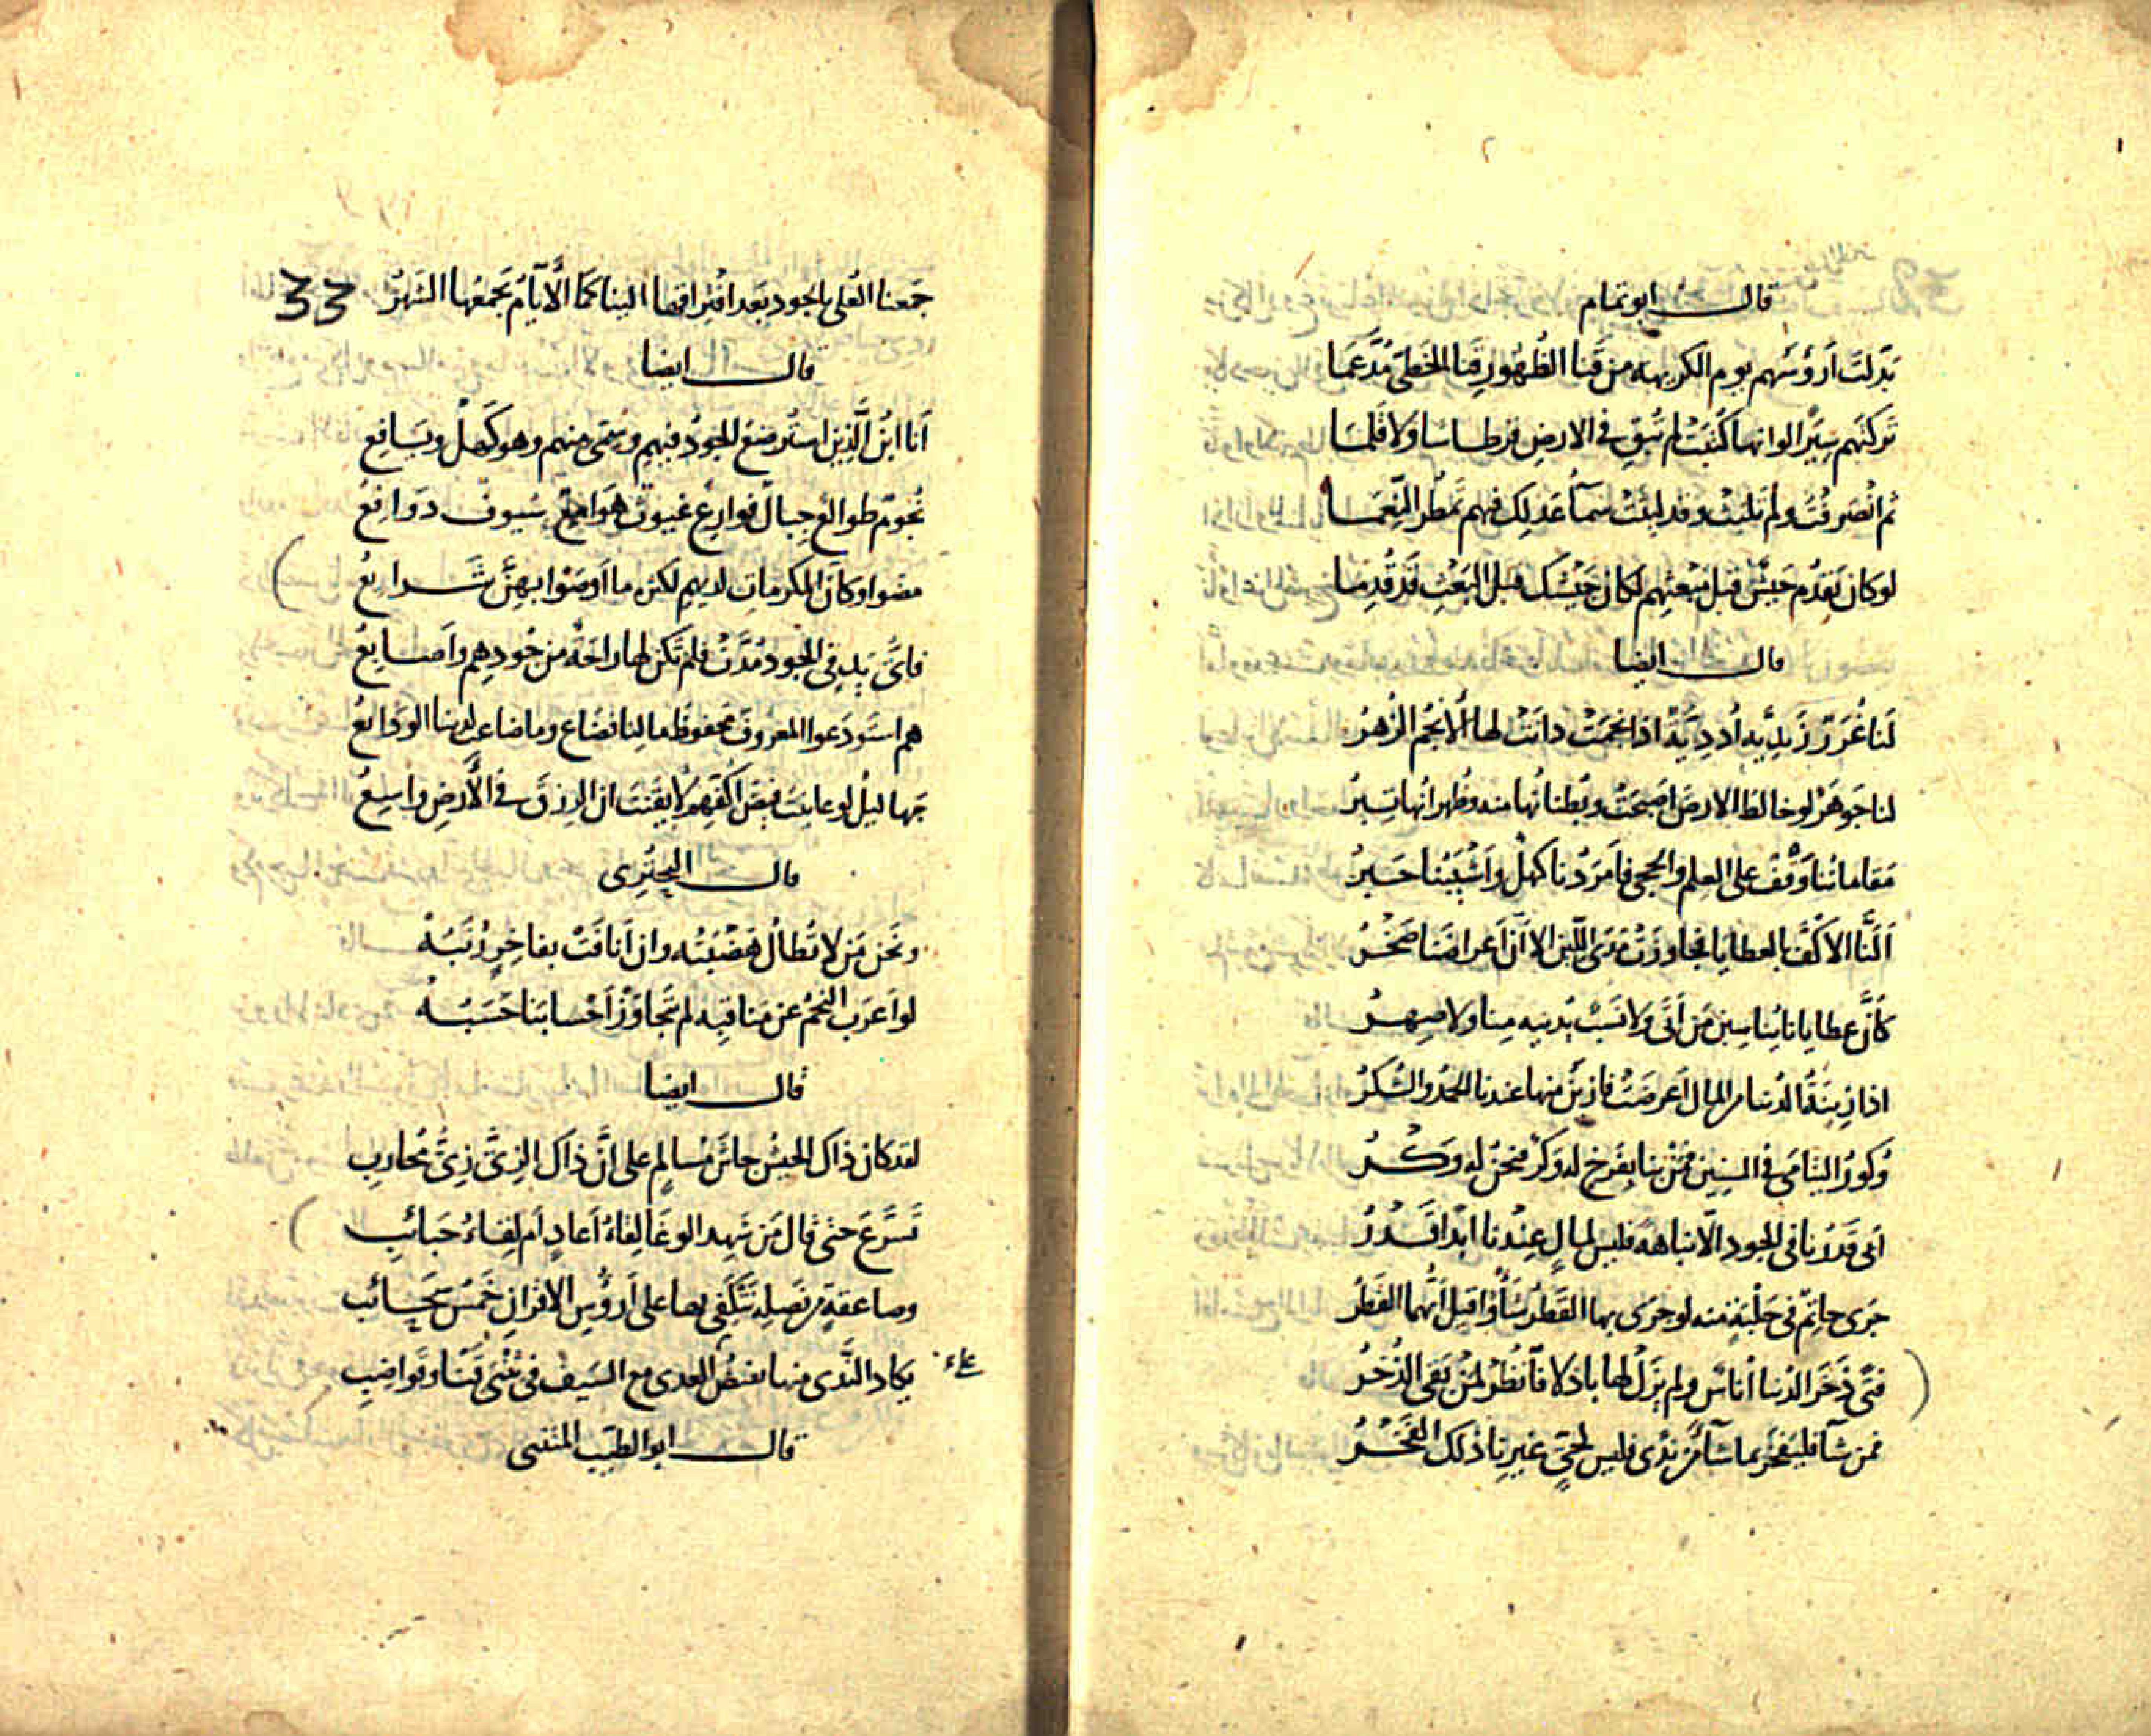 قال ابو تمام
بَدَّلتَ اَرؤُسَهم يوم الكريهه من قَنا الظُهُورِ قَنا الخَطِى مُدَّعَمَا
تركتَهم سِيَرًا لو انها كُتِبَتْ لم تُبقِ فى الارضِ قرطاسا ولا قَلَمَا
ثم انْصَرفْتَ ولم تلبَثْ وقد لبِثَتْ سَماءُ عَدلِك فيهم تَمْطُر النِّعَمَا
لو كان يَقدُم جَيشٌ قبلَ مَبعثِهم لكان جَيْشُك قبلَ البَعْثِ قَد قَدِما
قال ايضا
لَنا غُرَرٌ زَيدِيَّة اُدَدِيَّة اذا نَجَمَتْ دانَتْ لها الْاَنجُم الزُهرُ
لنا جَوهَرٌ لو خالطَ الارضَ اَصبَحَتْ وبُطنانُها منه وظُهرانُها تِبرُ
مَقاماتُنا وَقْفٌ على العِلم والحِجى فاَمرَدُنا كَهلٌ وَاَشيَبُنا حَبرُ
اَلَنَّا الاَكُفَّ بالعطايا فجاوزَتْ مَدَى اللّين الا اَنَّ اَعراضَنا صَخْرُ
كَاَنَّ عطايانا يُناسِبن مَن اَتَى ولا نَسَبٌ يُدنيه مِنا ولا صِهرُ
اذا زِينَةُ الدُنيا من المال اَعرضَتْ فازينُ منها عندنا الحمدُ والشُكرُ
وُكورُ اليَتامَى فى السِنينِ فمَنْ نبا بِفَرخٍ له وَكْرٌ فنحنُ له وَكْرُ
اَبى قَدرُنا فى الجود الّا نباهةً فليس لمالٍ عِنْدنا ابَدًا قَدْرُ
جَرَى حاتِمٌ فى حَلْبَةٍ منه لو جَرَى بها القَطرُ شَأْوًا قيل اَيُّهُما القَطْرُ
فتًى ذَخَرَ الدُنيا اُناسٌ ولم يَزَلْ لها باذلا فَانْظُرْ لِمَنْ بَقى الذُخرُ
فمن شآ فليَفخَرْ بما شآ مِن نَدًى فليس لحَىٍّ غيرِنا ذلك الفَخْرُ
جَمعنا العُلى بالجود بَعد افْتِراقها الينا كما الْاَيّامُ يَجمَعُها الشَهرُ
33
قال ايضا
اَنا ابْنُ الَّذِين استُرضِعَ الجودُ فيهم وسُمّى منهم وهو كَهلٌ ويَافِعُ
نُجُومٌ طوالِعٌ جِبالٌ فوارِعٌ غيوثٌ هَوَامِعٌ سُيوفٌ دَوَافِعُ
مضَوا وكانَّ المكرماتِ لديهم لكثره ما اَوصَوْا بهِنَّ شَرايِعُ
فاىُّ يدٍ فى الجودِ مُدَّتْ فلم تَكن لها راحَةٌ من جُودِهِم واَصابِعُ
هم استَودَعوا المعروفَ محفوظَ مالِنا فضَاع وما ضاعت لدينا الوَدايعُ
بَهاليلُ لو عاينتَ فيضَ اَكُفِّهِم لَايقَنتَ ان الرِزقَ فى الْاَرضِ واسِعُ
قال البحتُرِى
ونَحن مَن لا تُطالُ هَضْبَتُه وان اَنافَتْ بفاخِرٍ رُتَبُهْ
لو اَعرَب النجمُ عن مَناقبِه لم تَتجَاوَزْ اَحْسابَنا حَسَبُهْ
قال ايضا
لقد كان ذاك الجيشُ جاشَ مُسالمٍ على اَنَّ ذاك الزِىَّ زِىُّ مُحارِبِ
تَسَرَّعَ حتى قال مَن شَهِد الوغَا لِقاءُ اَعادٍ اَم لِقاءُ حَبائِبِ
وصاعقةٍ من نَصلِه تَنكَفى بها على اَرؤُسِ الاقرانِ خَمسُ سَحَائب
يكاد النَّدى منها يفيضُ على العدى مع السَيف فى ثِنْيَى قَنًا وقَواضِبِ
قال ابو الطيّب المتنبى